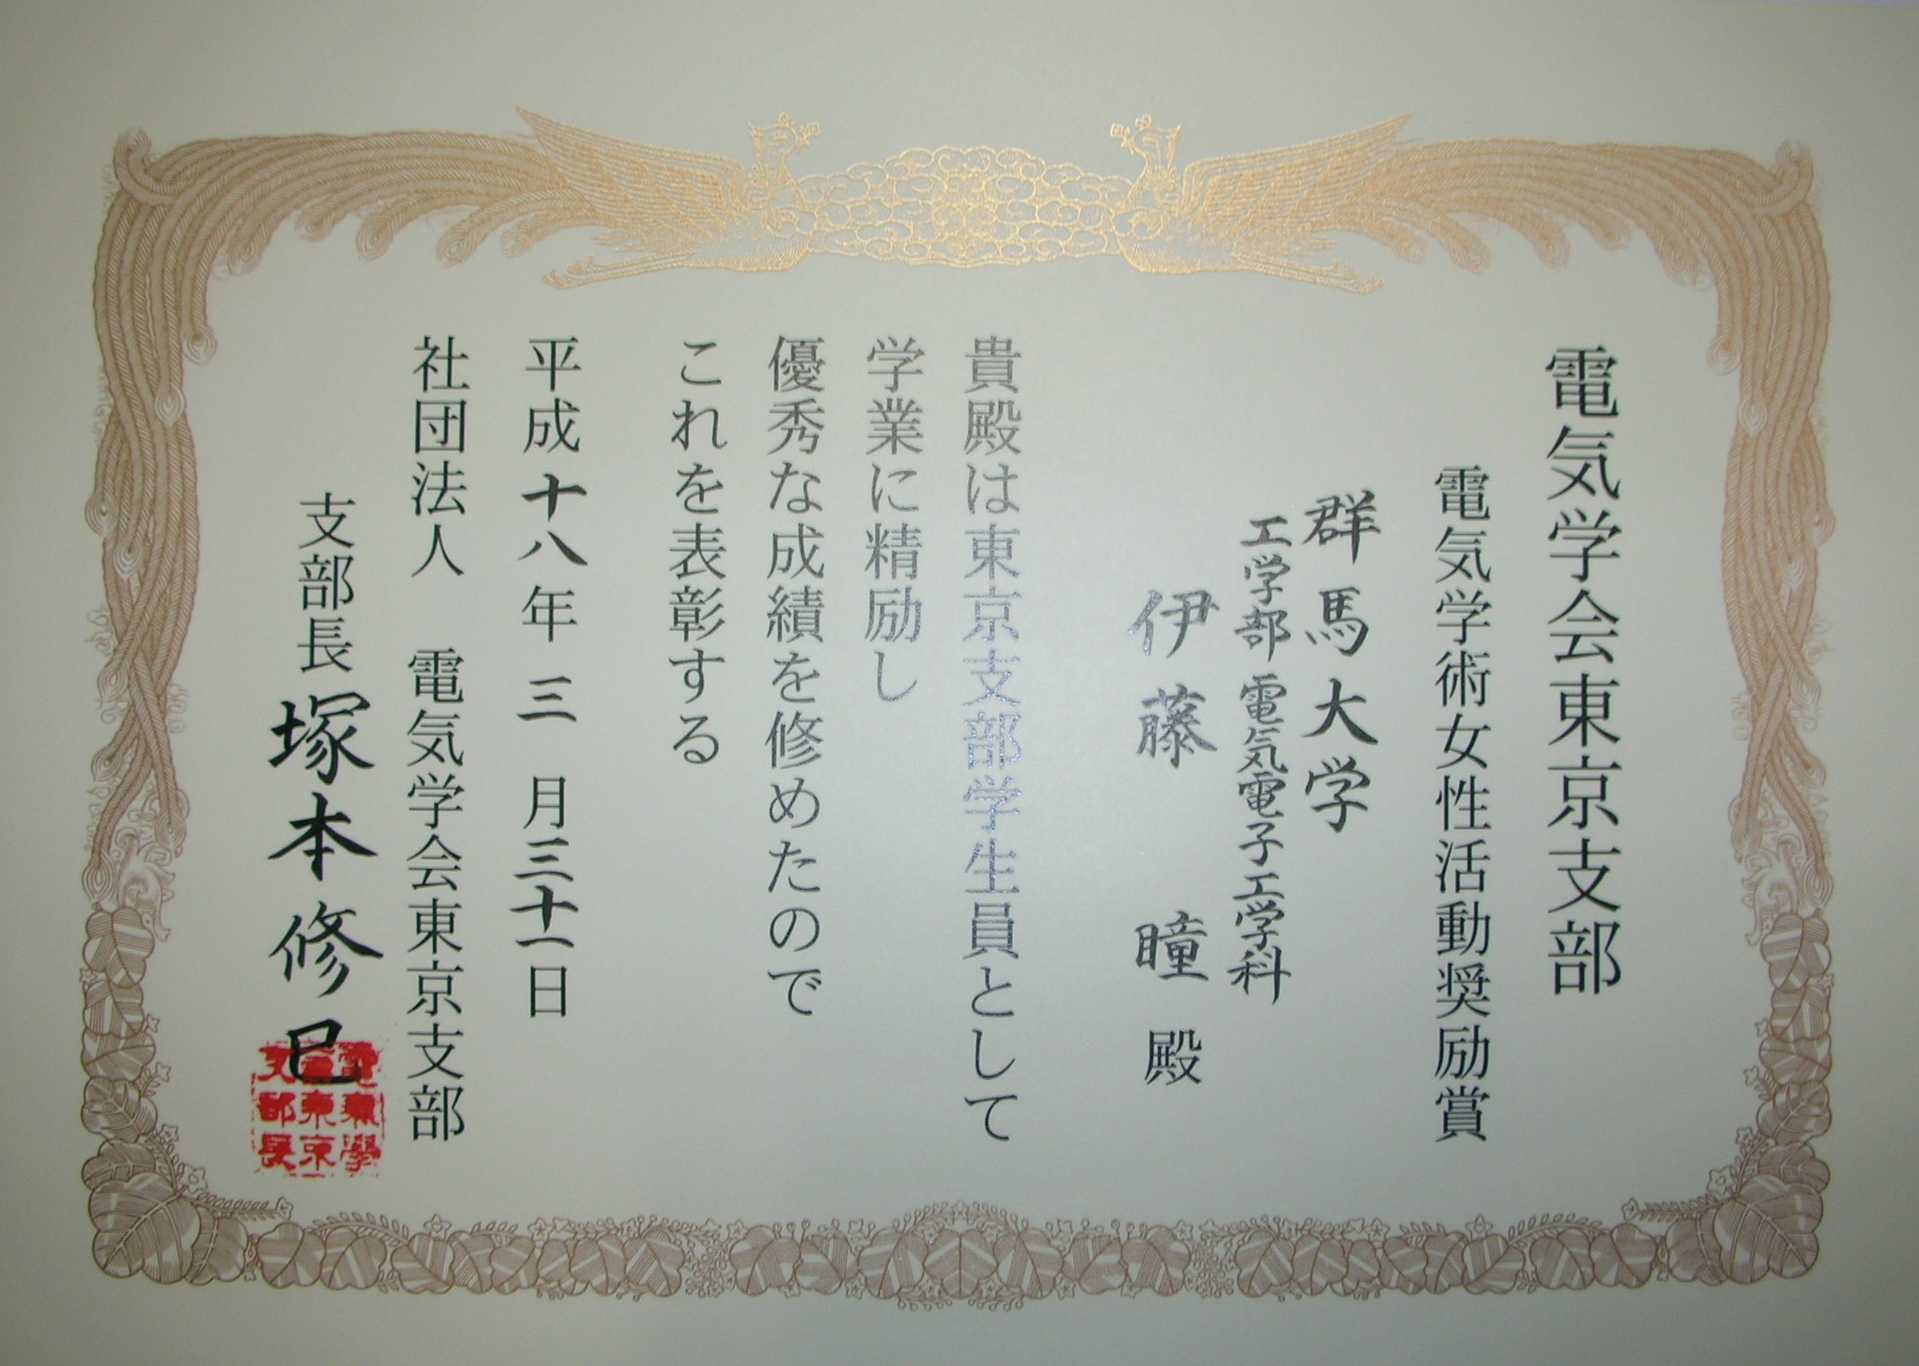 電気学会東京支部
電気学術女性活動奨励賞
群馬大学
工学部電気電子工学科
伊藤瞳殿
貴殿は東京支部学生員として
学業に精励し
優秀な成績を修めたので
これを表彰する
平成十八年三月三十一日
社団法人 電気学会東京支部
支部長塚本修巳
電氣學
會東京
支部長